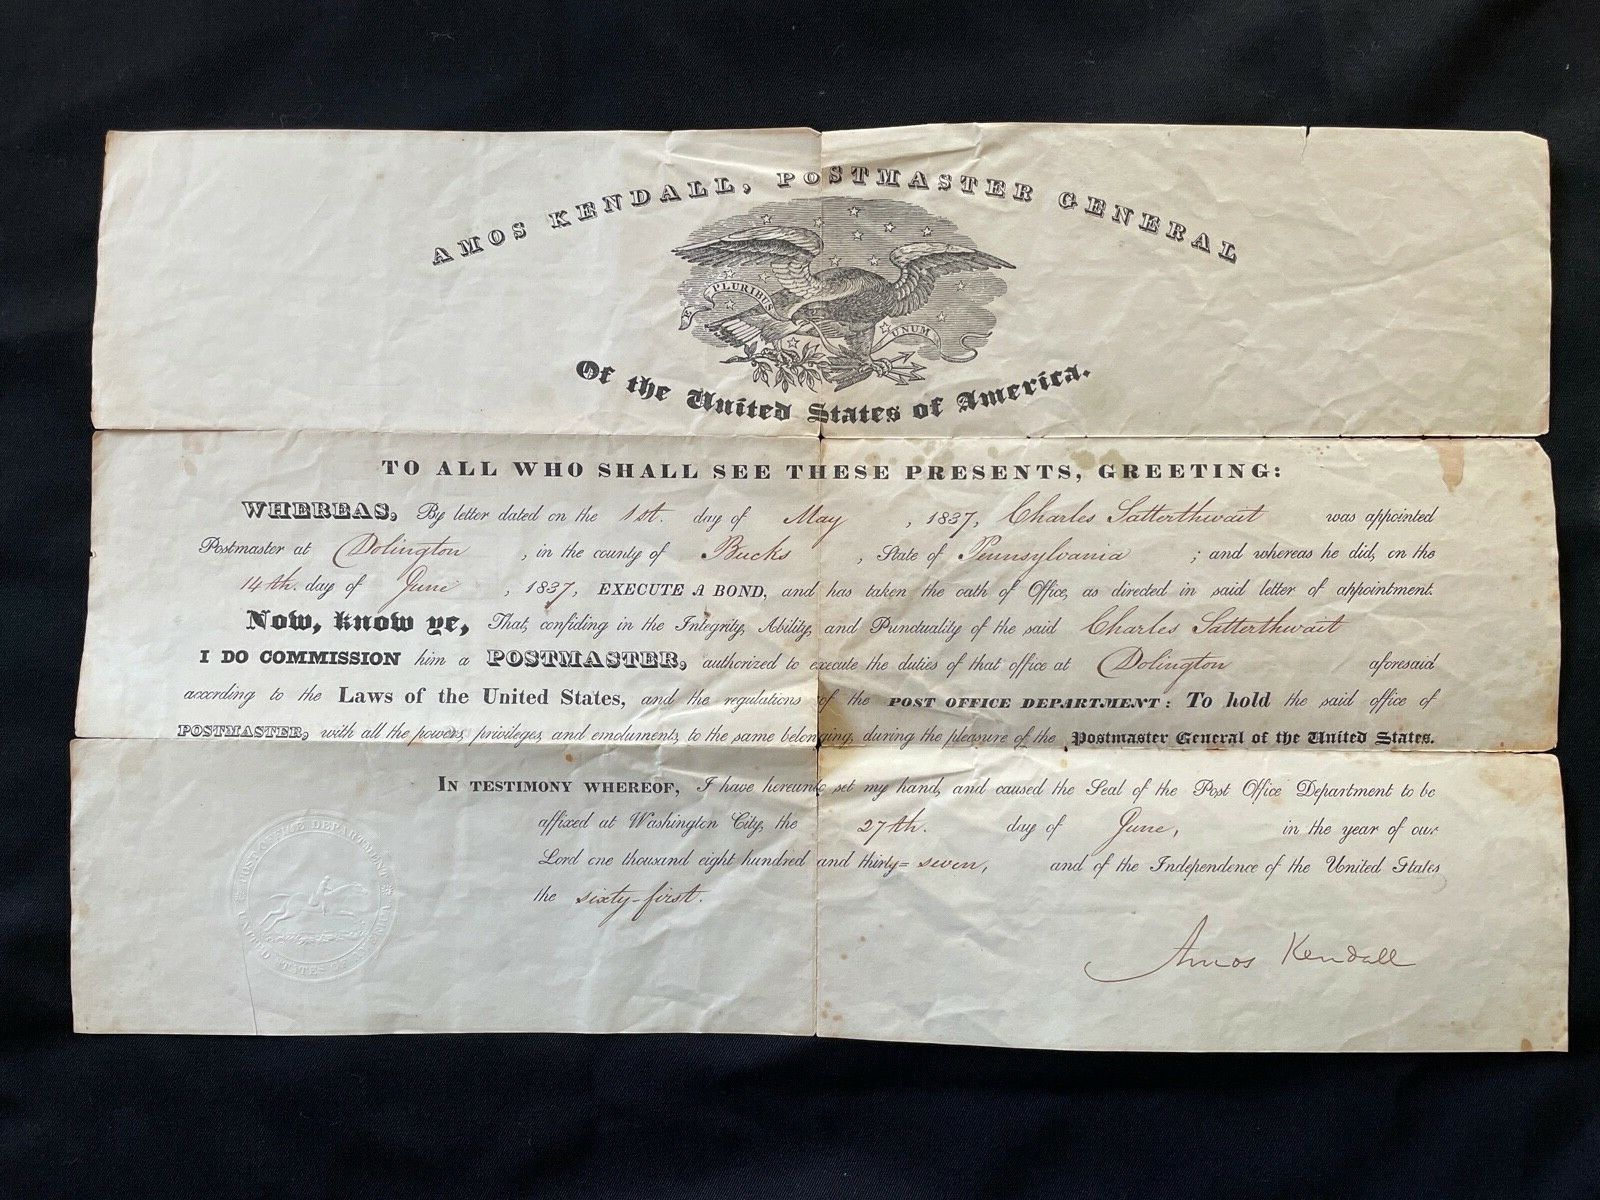 AMOS KENDALL, POSTMASTER GENERAL
E PLURIBUS UNUM
Of the United States of America.
TO ALL WHO SHALL SEE THESE PRESENTS, GREETING:
WHEREAS, By letter dated on the 1st. day of May, 1837, Charles Satterthwait was appointed
Postmaster at Dolington, in the county of Bucks, State of Pennsylvania; and whereas he did, on the
14th. day of June, 1837, EXECUTE A BOND, and has taken the oath of Office, as directed in said letter of appointment.
Now, know ye, That, confiding in the Integrity, Ability, and Punctuality of the said Charles Satterthwait
I DO COMMISSION him a POSTMASTER, authorized to execute the duties of that office at Dolington aforesaid
according to the Laws of the United States, and the regulations of the POST OFFICE DEPARTMENT: To hold the said office of
POSTMASTER, with all the powers, privileges, and emoluments, to the same belonging, during the pleasure of the Postmaster General of the United States.
IN TESTIMONY WHEREOF, I have hereunto set my hand, and caused the Seal of the Post Office Department to be
affixed at Washington City, the 27th. day of June, in the year of our
Lord one thousand eight hundred and thirty=seven, and of the Independence of the United States
the sixty-first.
POST OFFICE DEPARTMENT
UNITED STATES OF AMERICA
Amos Kendall